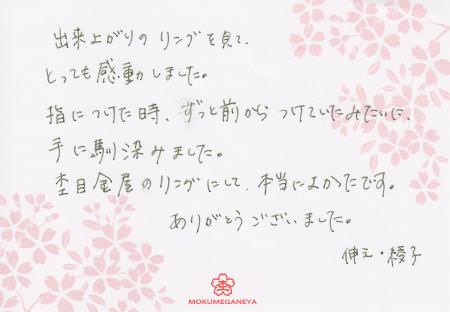 出来上がりのリングを見て、
とっても感動しました。
指につけた時、ずっと前からつけていたみたいに、
手に馴染みました。
杢目金屋のリングにして、本当によかったです。
ありがとうございました。
伸之・綾子
MOKUMEGANEYA